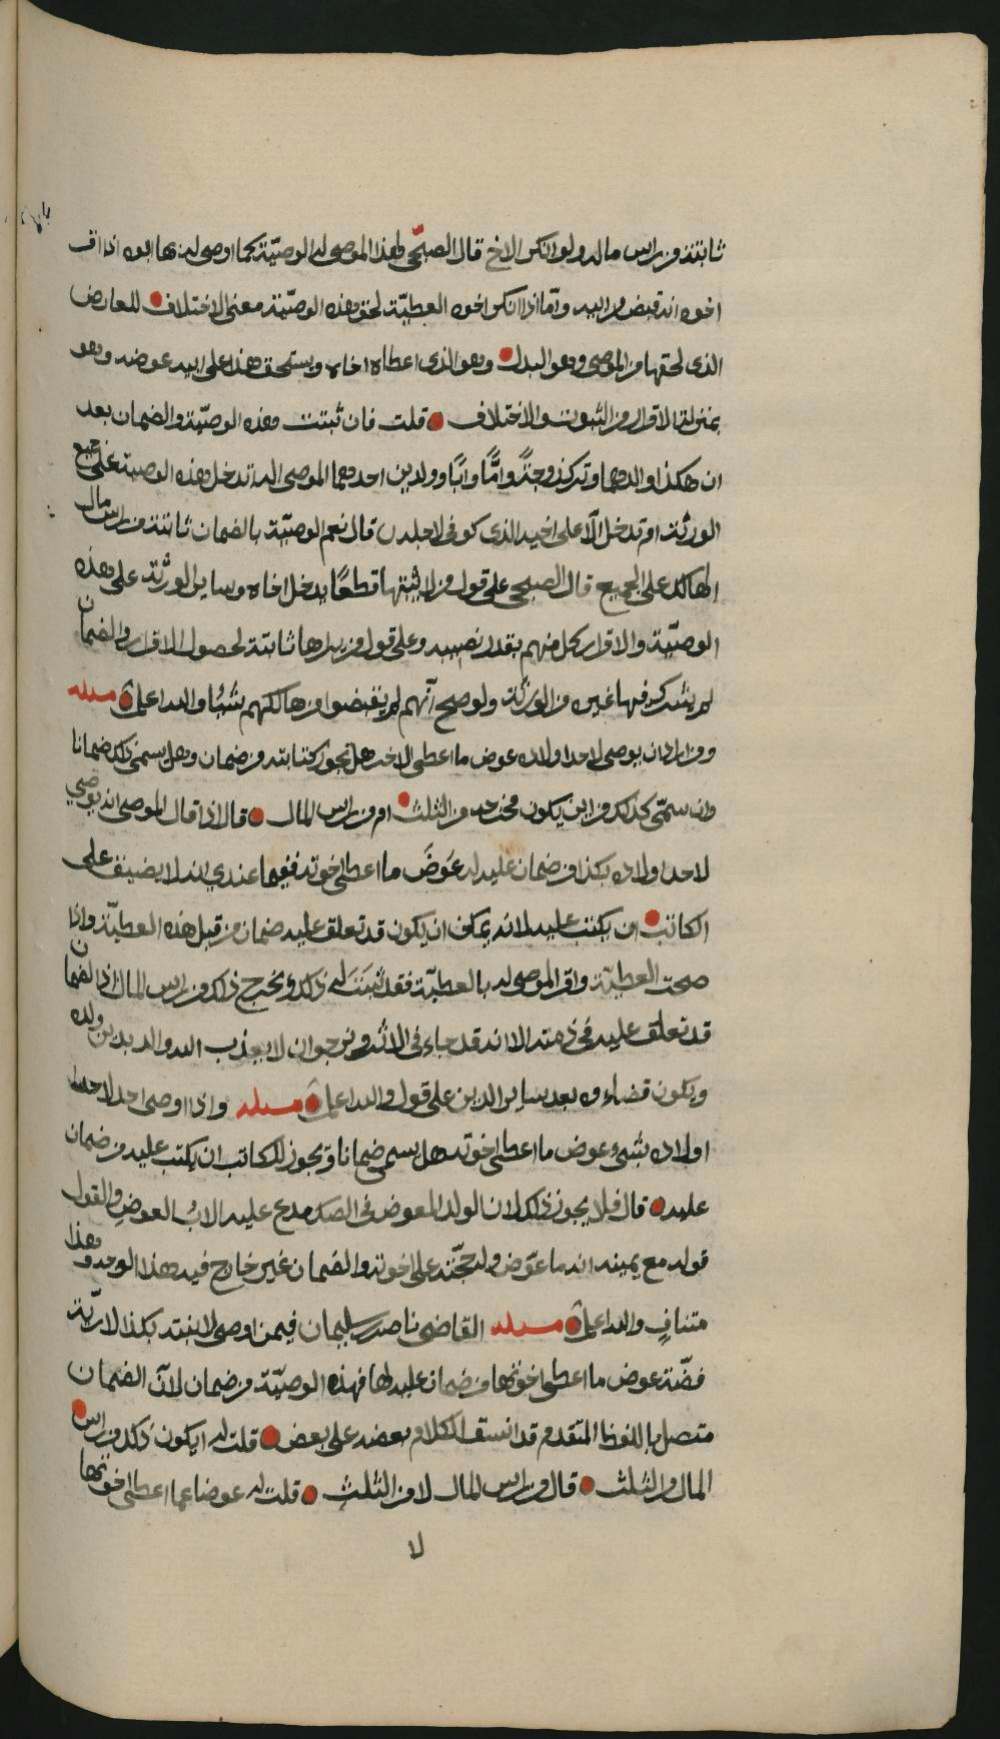 ثابتة من راس ماله ولو انكر الاخ قال الصبحي لهذا الموصى له الوصيّة كما اوصى له بها ابوه اذا اقر
اخوه انه قبض من ابيه واما اذا انكر اخوه العطيّة لحق هذه الوصيّة معنى الاختلاف للتعارض
الذي لحقها من الموصي وهو البدل وهو الذي اعطاه اخاه ويستحق هذا على ابيه عوضه وهو
بمنزلة الاقرار من الثبوت والاختلاف قلت فان ثبتت هذه الوصيّة والضمان بعد
ان هلك والدهما وترك زوجةً وامًّا وابًا وولدين احدهما الموصى له تدخل هذه الوصية على جميع
الورثة ام تدخل الّا على اخيه الذي كوفي لاجله قال نعم الوصيّة بالضمان ثابتة من راس مال
الهالك على الجميع قال الصبحي على قول من اثبتها قطعًا يدخل اخاه وساير الورثة على هذه
الوصيّة والاقرار كل منهم بقدر نصيبه وعلى قول من يراها ثابتة لحصول الاقرار والضمان
لم يشرك فيها غيره من الورثة ولو صح انهم لم يقبضوا من هالكهم شيئًا والله اعلم مسله
ومن اراد ان يوصي لاحد اولاده عوض ما اعطى الاخر هل تجوز كتابته من ضمان وهل يسمى ذلك ضمانا
وان سمّي كذلك من اين يكون مخرجه من الثلث ام من راس المال قال اذا قال الموصي انه يوصي
لاحد اولاده بكذا من ضمان عليه له عَوضَ ما اعطى اخوته ففيما عندي انه لا يضيق على
الكاتب ان يكتب عليه لانه يمكن ان يكون قد تعلق عليه ضمان من قبل هذه العطيّة واذا
صحت العطيّة واقر الموصى له بالعطيّة فقد ثبَتَ له ذلك ويخرج ذلك من راس المال اذا الضمان
قد تعلق عليه في ذمته الا انه قد جاء في الاثر ونرجوا ان لا يعذب الله والد بدين ولده
ويكون قضاءوه بعد ساير الدين على قول والله اعلم مسله واذا اوصى احد لاحد
اولاده بشيء عوض ما اعطى اخوته هل يسمى ضمانا ويجوز للكاتب ان يكتب عليه من ضمان
عليه قال فلا يجوز ذلك لان الولد المعوض في الصك مدع عليه الابُ العوض والقول
قوله مع يمينه انه ما عوّض ولا حجّته على اخوته والضمان غير خارج فيه هذا الوجه وهذا
متنافٍ والله اعلم مسله القاضي ناصر بن سليمان فيمن اوصى لابنته بكذا لاريّة
فضّة عوض ما اعطى اخوتها من ضمان عليه لها فهذه الوصيّة من ضمان لانّ الضمان
متصل باللفظ المتقدم قد انسق الكلام بعضه على بعض قلت له ايكون ذلك من راس
المال او الثلث قال من راس المال لا من الثلث قلت له عوضا عما اعطى اخوتها
لا